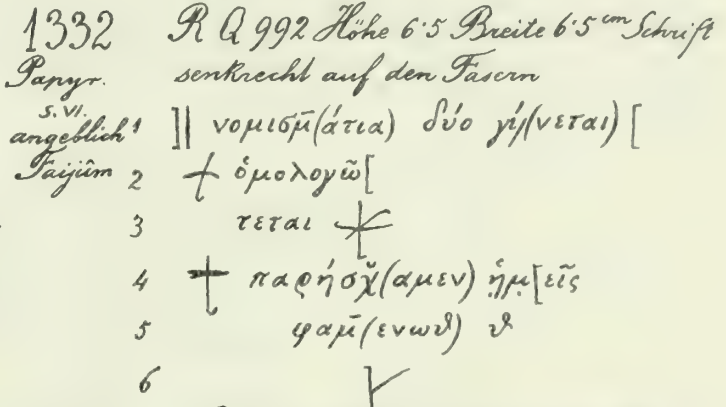 1332 R Q 992 Höhe 6·5 Breite 6·5 cm Schrift
Papyr. senkrecht auf den Fasern
s. VI.
angeblich 1 ]|| νομισμ̄(άτια) δύο γί(νεται) [
Faijûm 2 + ὁμολογῶ[
3 τεται ⳨
4 + παρήσχ̆(αμεν) ἡ̣μ̣[εῖς
5 φαμ̄(ενωϑ) ϑ
6